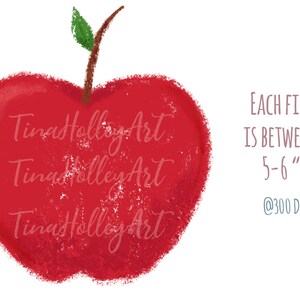 TinaHolleyArt
TinaHolleyArt
TinaHolleyArt
EACH FI
IS BETWE
5-6 "
@300 D